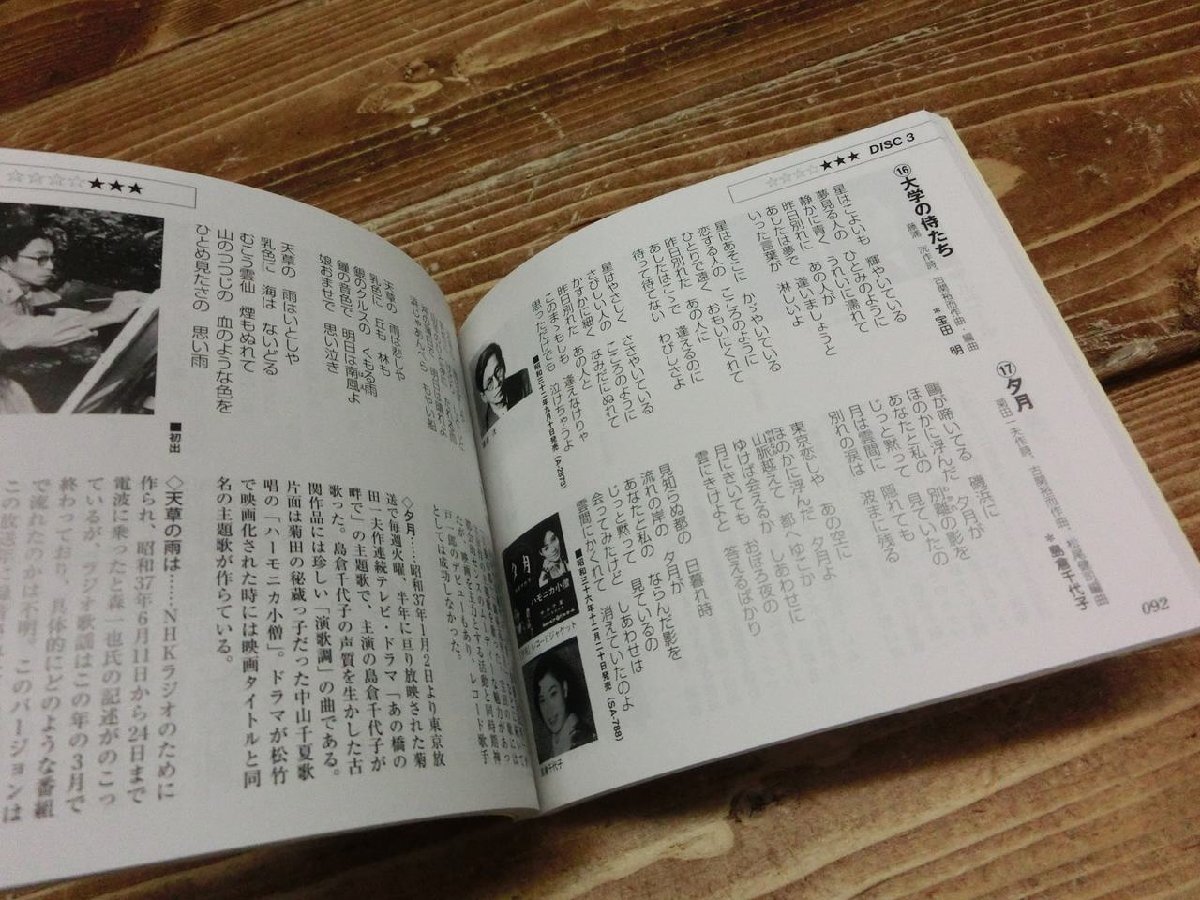 ☆☆☆☆★★★ DISC 3
⑯大学の侍たち
藤浦 洸作詩、古関裕而作曲・編曲
＊宝田 明
星はこよいも 輝やいている
夢見る人の ひとみのように
静かに青く うれいに濡れて
昨日別れた あの人が
あしたは夢で 逢いましょうと
いった言葉が 淋しいよ
星はあそこに かゞやいている
恋する人の こころのように
ひとりで遠く おもいにくれて
昨日別れた あの人に
あしたはこゝで 逢えるのに
待って待てない わびしさよ
星はやさしく ささやいている
さびしい人の こころのように
かすかに細く なみだにぬれて
昨日別れた あの人と
こりまゝもしも 逢えなけりゃ
思っただけでも 泣けちゃうよ
■昭和三十二年九月十日発売
⑰夕月
菊田一夫作詩、古関裕而作曲、松尾健司編曲
＊島倉千代子
鴎が啼いてる 磯浜に
ほのかに浮んだ 夕月が
あなたと私の 別離の影を
じっと黙って 見ていたの
月は雲間に 隠れても
別れの涙は 波まに残る
東京恋しや あの空に
ほのかに浮んだ 夕月よ
山脈越えて 都へゆこか
ゆけば会えるか しあわせに
月にきいても おぼろ夜の
雲にきけよと 答えるばかり
見知らぬ都の 日暮れ時
流れの岸の 夕月が
あなたと私の ならんだ影を
じっと黙って 見ているの
会ってみたけど しあわせは
雲間にかくれて 消えていたのよ
■昭和三十六年十二月二十日発売(SA-788)
夕月
ハモニカ小僧
092
☆☆☆☆★★★
天草の 雨は悲しや
乳色に 丘も 林も
銀のクルスの くもる雨
鐘の音色で 明日は南風よ
娘おませで 思い泣き
天草の 雨はいとしや
乳色に 海は ないどる
むこう雲仙 煙もぬれて
山のつつじの 血のような色を
ひとめ見たさの 思い雨
■初出
としては成功しなかった。
◇夕月……昭和37年1月2日より東京放
送で毎週火曜、半年に亘り放映された菊
田一夫作連続テレビ・ドラマ「あの橋の
畔で」の主題歌で、主演の島倉千代子が
歌った。島倉千代子の声質を生かした古
関作品には珍しい「演歌調」の曲である。
片面は菊田の秘蔵っ子だった中山千夏歌
唱の「ハーモニカ小僧」。ドラマが松竹
で映画化された時には映画タイトルと同
名の主題歌が作らている。
◇天草の雨は……NHKラジオのために
作られ、昭和37年6月11日から24日まで
電波に乗ったと森 也氏の記述がのこっ
ているが、ラジオ歌謡はこの年の3月で
終わっており、具体的にどのような番組
で流れたのかは不明。このバージョンは